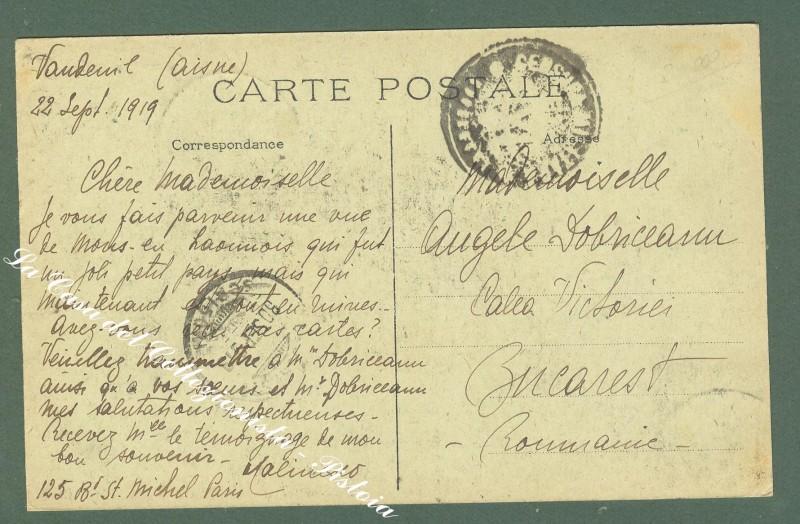 Vandeuil (aisne)
22 Sept. 1919
CARTE POSTALE
Correspondance
Adresse
Chère Mademoiselle
Je vous fais parvenir une vue
de Mons-en-Laonnois qui fut
un joli petit pays mais qui
maintenant est tout en ruines.
Avez-vous reçu mes cartes?
Veuillez transmettre à Mme Dobriceanu
ainsi qu'à vos sœurs et Mr Dobriceanu
mes salutations respectueuses.
Recevez Mlle le témoignage de mon
bon souvenir.
125 Bd St. Michel Paris
Mademoiselle
Angele Dobriceanu
Calea Victoriei
Bucarest
- Roumanie -
La Casa del Collezionista - Pistoia